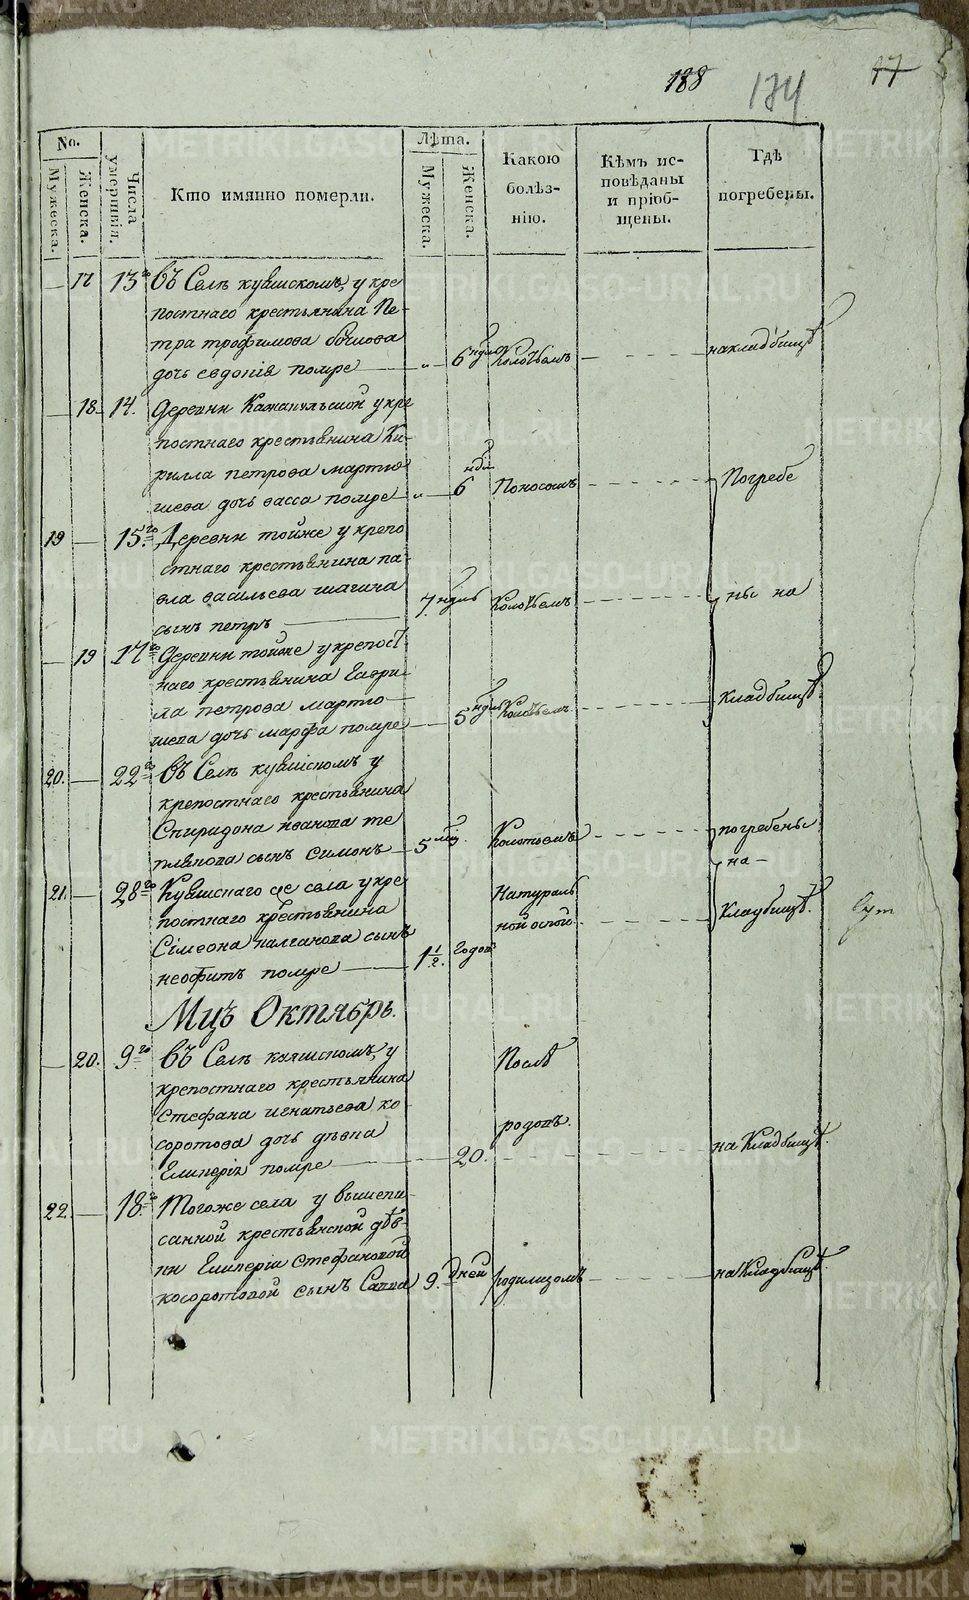 188 174 17
No.
Мужеска.
Женска.
Числа умершихъ.
Кто имянно померли.
Лѣта.
Мужеска.
Женска.
Какою
болѣз-
нію.
Кѣмъ ис-
повѣданы
и пріоб-
щены.
Гдѣ
погребены.
17 13го въ Селѣ кувшскомъ, у кре
постнаго крестьянина Пе-
тра трофимова
дочь евдокія помре 6 ндль Колотьемъ на кладбищѣ
18 14. Деревни у кре
постнаго крестьянина Ки-
рилла петрова мартю
шева дочь васса помре 6 нді Поносомъ Погребе
19 15го Деревни тойже у крепо
стнаго крестьянина па-
вла васильева шагина
сынъ петръ 7 ндль Колотьемъ ны на
19 17го Деревни тойже у крепост
наго крестьянина Гаври-
ла петрова мартю
шева дочь марфа помре 5 ндль Колотьемъ кладбищѣ.
20. 22го въ Селѣ кувшскомъ у
крепостнаго крестьянина
Спиридона иванова те
плякова сынъ симонъ 5 мц. Колотьемъ погребены
на
21. 28го Кувшскаго же села у кре
постнаго крестьянина
Сімеона сынъ
неофитъ помре 1 1/2. годов Натураль
ной оспой кладбищѣ.
Мцъ Октябрь.
20. 9го въ Селѣ кувшскомъ, у
крепостнаго крестьянина
стефана игнатьева ко
соротова дочь дѣвка
Гликерія помре 20. Послѣ
родовъ. на Кладбищѣ.
22 18го Тогоже села у вышепи
санной крестьянской дѣв-
ки Гликеріи стефановой
косоротовой сынъ Савва 9. дней родимцомъ на Кладбищѣ.
METRIKI.GASO-URAL.RU